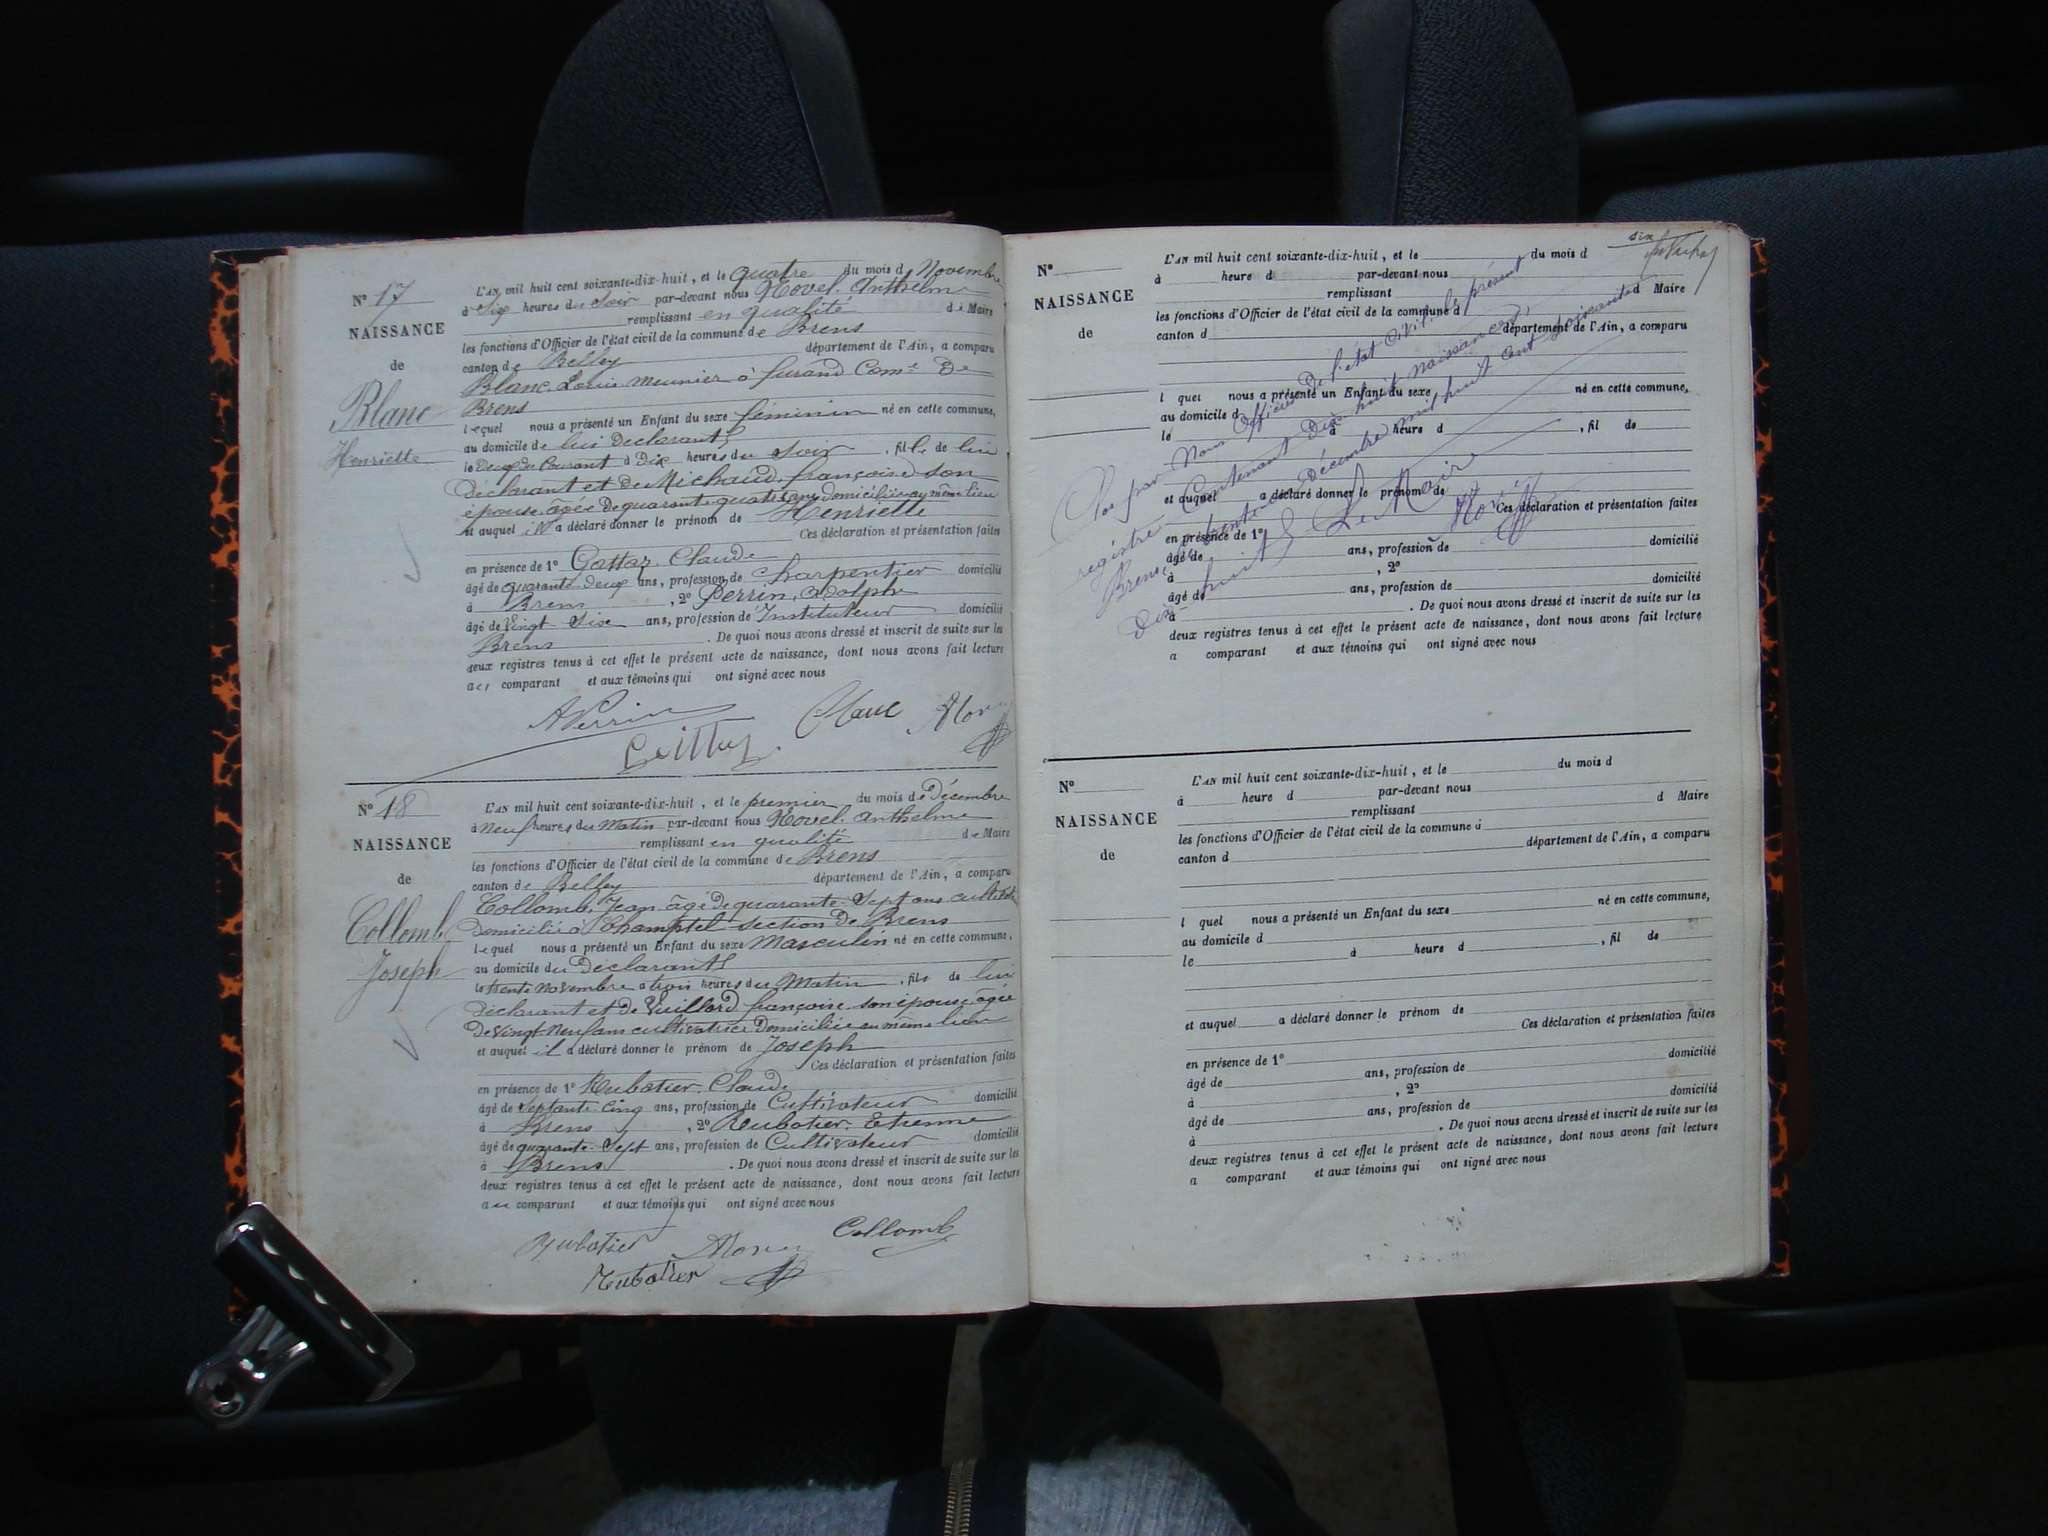 N° 17
NAISSANCE
de
Blanc
Henriette
L'AN mil huit cent soixante-dix-huit, et le quatre du mois d Novembre
à Six heures du Soir par-devant nous Novel. Anthelme
remplissant en qualité de Maire
les fonctions d'Officier de l'état civil de la commune de Brens
canton de Belley département de l'Ain, a comparu
Blanc, Louis meunier à furand Com.e De
Brens
lequel nous a présenté un Enfant du sexe féminin né en cette commune,
au domicile de lui déclarant
le Deux du Courant à Dix heures du Soir, fille de lui
déclarant et de Michaud, françoise son
épouse âgée de quarante quatre ans domiciliée au même lieu
et auquel il a déclaré donner le prénom de Henriette
Ces déclaration et présentation faites
en présence de 1° Claude
âgé de quarante deux ans, profession de Charpentier domicilié
à Brens, 2° Perrin, Adolphe
âgé de Vingt Six ans, profession de Instituteur domicilié
Brens. De quoi nous avons dressé et inscrit de suite sur les
deux registres tenus à cet effet le présent acte de naissance, dont nous avons fait lecture
aux comparant et aux témoins qui ont signé avec nous
APerrin Blanc Novel
N° 18
NAISSANCE
de
Collomb
Joseph
L'AN mil huit cent soixante-dix-huit, et le premier du mois de Décembre
à Neuf heures du Matin par-devant nous Novel. Anthelme
remplissant en qualité de Maire
les fonctions d'Officier de l'état civil de la commune de Brens
canton de Belley département de l'Ain, a comparu
Collomb, Jean âgé de quarante Sept ans cultivateur
domicilié à Champtel section de Brens
lequel nous a présenté un Enfant du sexe Masculin né en cette commune,
au domicile du Déclarant
le trente novembre à trois heures du Matin, fils de lui
déclarant et de Vuillard françoise son épouse, âgée
de vingt-neuf ans cultivatrice domiciliée au même lieu
et auquel il a déclaré donner le prénom de Joseph
Ces déclaration et présentation faites
en présence de 1° Rubatier. Claude
âgé de Septante Cinq ans, profession de Cultivateur domicilié
à Brens, 2° Rubatier. Etienne
âgé de quarante-Sept ans, profession de Cultivateur domicilié
à Brens. De quoi nous avons dressé et inscrit de suite sur les
deux registres tenus à cet effet le présent acte de naissance, dont nous avons fait lecture
au comparant et aux témoins qui ont signé avec nous
Rubatier Novel Collomb
Rubatier
six
N°
NAISSANCE
de
L'AN mil huit cent soixante-dix-huit, et le du mois d
à heure d par-devant nous
remplissant d Maire
les fonctions d'Officier de l'état civil de la commune d
canton d département de l'Ain, a comparu
l quel nous a présenté un Enfant du sexe né en cette commune,
au domicile d
le à heure d, fil de
et auquel a déclaré donner le prénom de
Ces déclaration et présentation faites
en présence de 1°
âgé de ans, profession de domicilié
à, 2°
âgé de ans, profession de domicilié
à. De quoi nous avons dressé et inscrit de suite sur les
deux registres tenus à cet effet le présent acte de naissance, dont nous avons fait lecture
a comparant et aux témoins qui ont signé avec nous
Clos par Nous Officier de l'état Civil. le présent
registre Contenant Dix-huit naissances,
Brens, le trente un Décembre mil huit cent soixante
dix-huit Le Maire
Novel
N°
NAISSANCE
de
L'AN mil huit cent soixante-dix-huit, et le du mois d
à heure d par-devant nous
remplissant d Maire
les fonctions d'Officier de l'état civil de la commune d
canton d département de l'Ain, a comparu
l quel nous a présenté un Enfant du sexe né en cette commune,
au domicile d
le à heure d, fil de
et auquel a déclaré donner le prénom de
Ces déclaration et présentation faites
en présence de 1°
âgé de ans, profession de domicilié
à, 2°
âgé de ans, profession de domicilié
à. De quoi nous avons dressé et inscrit de suite sur les
deux registres tenus à cet effet le présent acte de naissance, dont nous avons fait lecture
a comparant et aux témoins qui ont signé avec nous